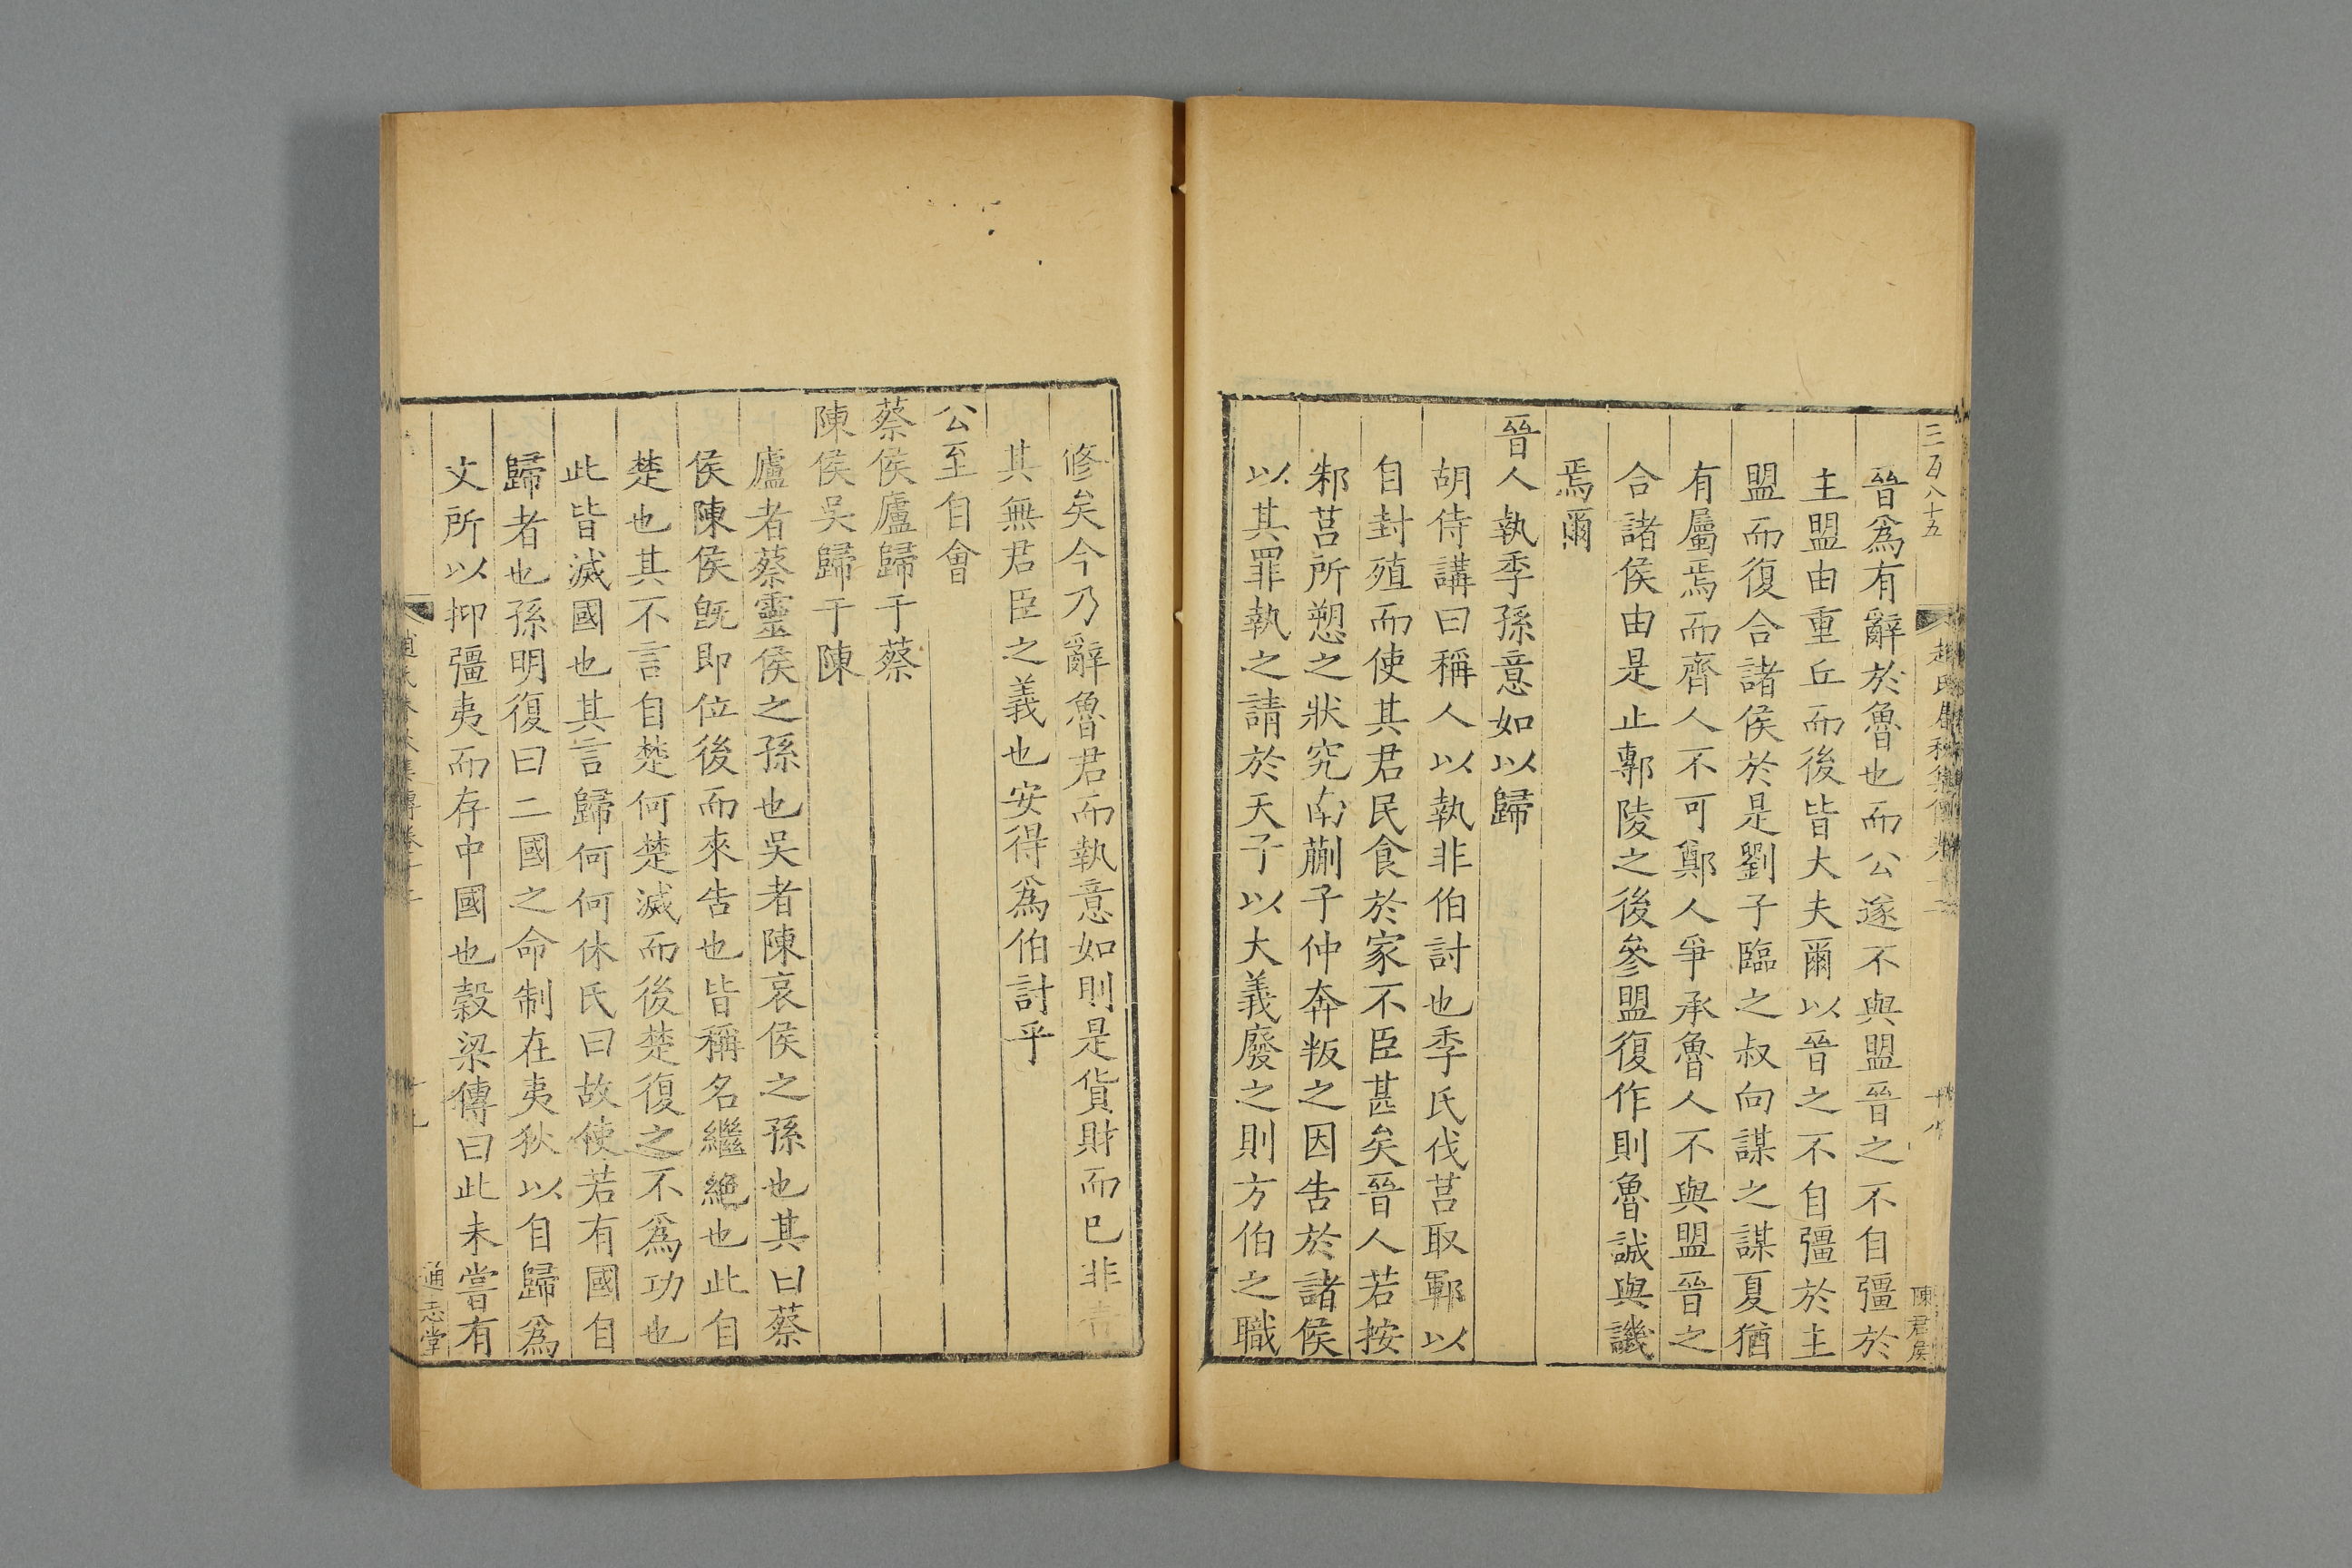 三百八十五
十八
陳君侯
晉爲有辭於魯也而公遂不與盟晉之不自彊於
主盟由重丘而後皆大夫爾以晉之不自彊於主
盟而復合諸侯於是劉子臨之叔向謀之謀夏猶
有屬焉而齊人不可鄭人爭承魯人不與盟晉之
合諸侯由是止鄟陵之後參盟復作則魯誠與譏
焉爾
晉人執季孫意如以歸
胡侍講曰稱人以執非伯討也季氏伐莒取鄆以
自封殖而使其君民食於家不臣甚矣晉人若按
邾莒所愬之狀究南蒯子仲奔叛之因告於諸侯
以其罪執之請於天子以大義廢之則方伯之職
修矣今乃辭魯君而執意如則是貨財而已非責
其無君臣之義也安得爲伯討乎
公至自會
蔡侯廬歸于蔡
陳侯吳歸于陳
廬者蔡靈侯之孫也吳者陳哀侯之孫也其曰蔡
侯陳侯旣即位後而來告也皆稱名繼絕也此自
楚也其不言自楚何楚滅而後楚復之不爲功也
此皆滅國也其言歸何何休氏曰故使若有國自
歸者也孫明復曰二國之命制在夷狄以自歸爲
文所以抑彊夷而存中國也穀梁傳曰此未嘗有
通志堂